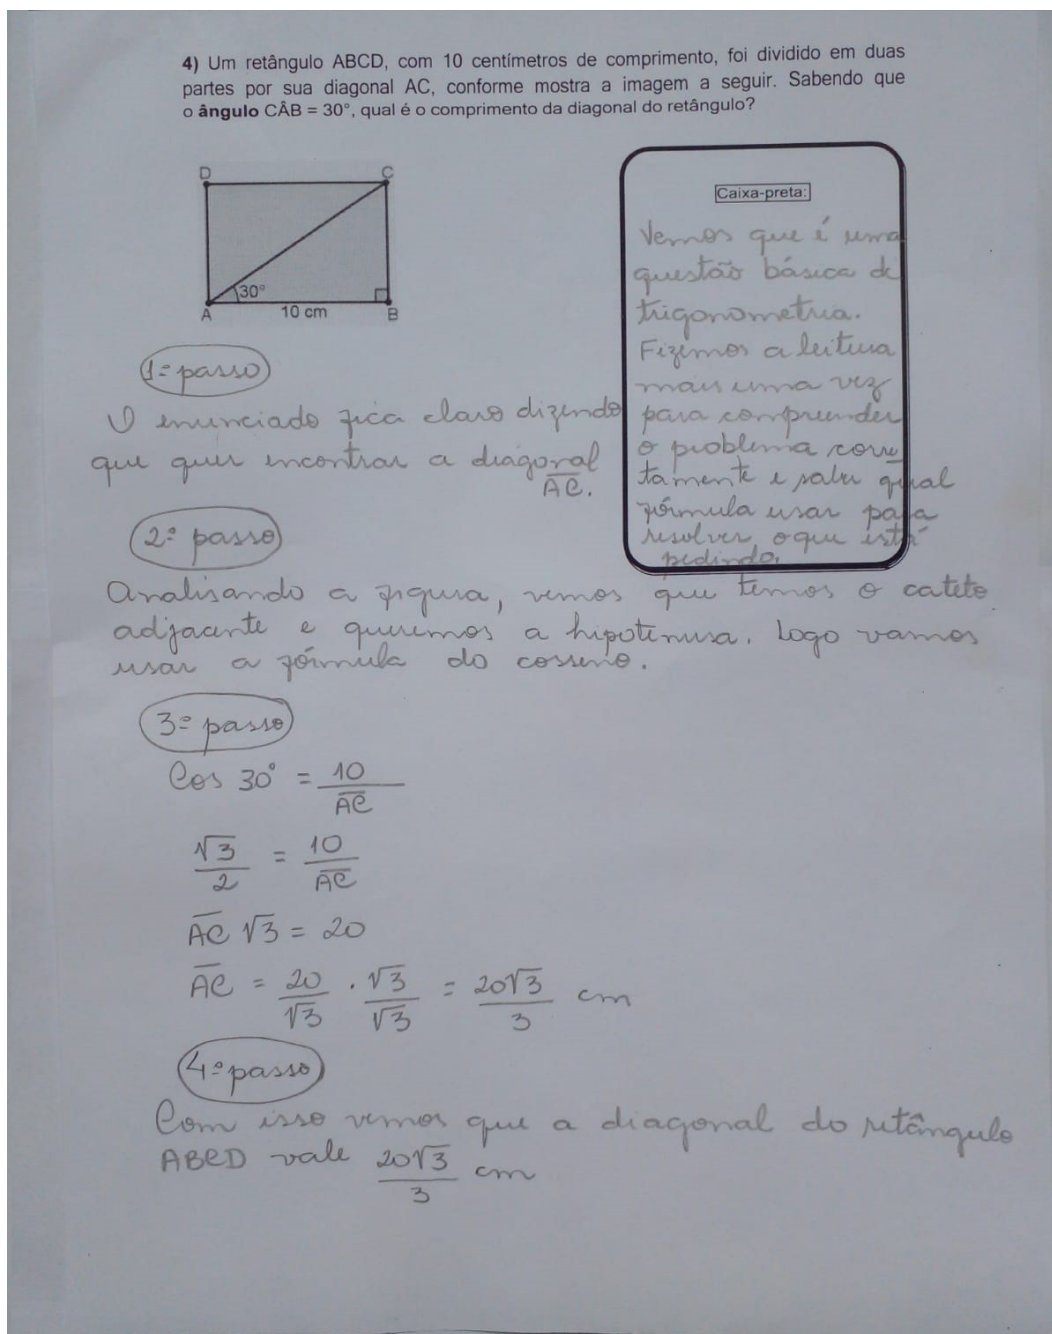 4) Um retângulo ABCD, com 10 centímetros de comprimento, foi dividido em duas
partes por sua diagonal AC, conforme mostra a imagem a seguir. Sabendo que
o ângulo CÂB = 30°, qual é o comprimento da diagonal do retângulo?
D C
30°
A 10 cm B
Caixa-preta:
Vemos que é uma
questão básica de
trigonometria.
Fizemos a leitura
mais uma vez
para compreender
o problema corre
tamente e saber qual
fórmula usar para
resolver o que está
pedindo.
1º passo
O enunciado fica claro dizendo
que quer encontrar a diagonal
A̅C̅.
2º passo
Analisando a figura, vemos que temos o cateto
adjacente e queremos a hipotenusa. Logo vamos
usar a fórmula do cosseno.
3º passo
Cos 30° = 10/A̅C̅
√3/2 = 10/A̅C̅
A̅C̅ √3 = 20
A̅C̅ = 20/√3 . √3/√3 = 20√3/3 cm
4º passo
Com isso vemos que a diagonal do retângulo
ABCD vale 20√3/3 cm